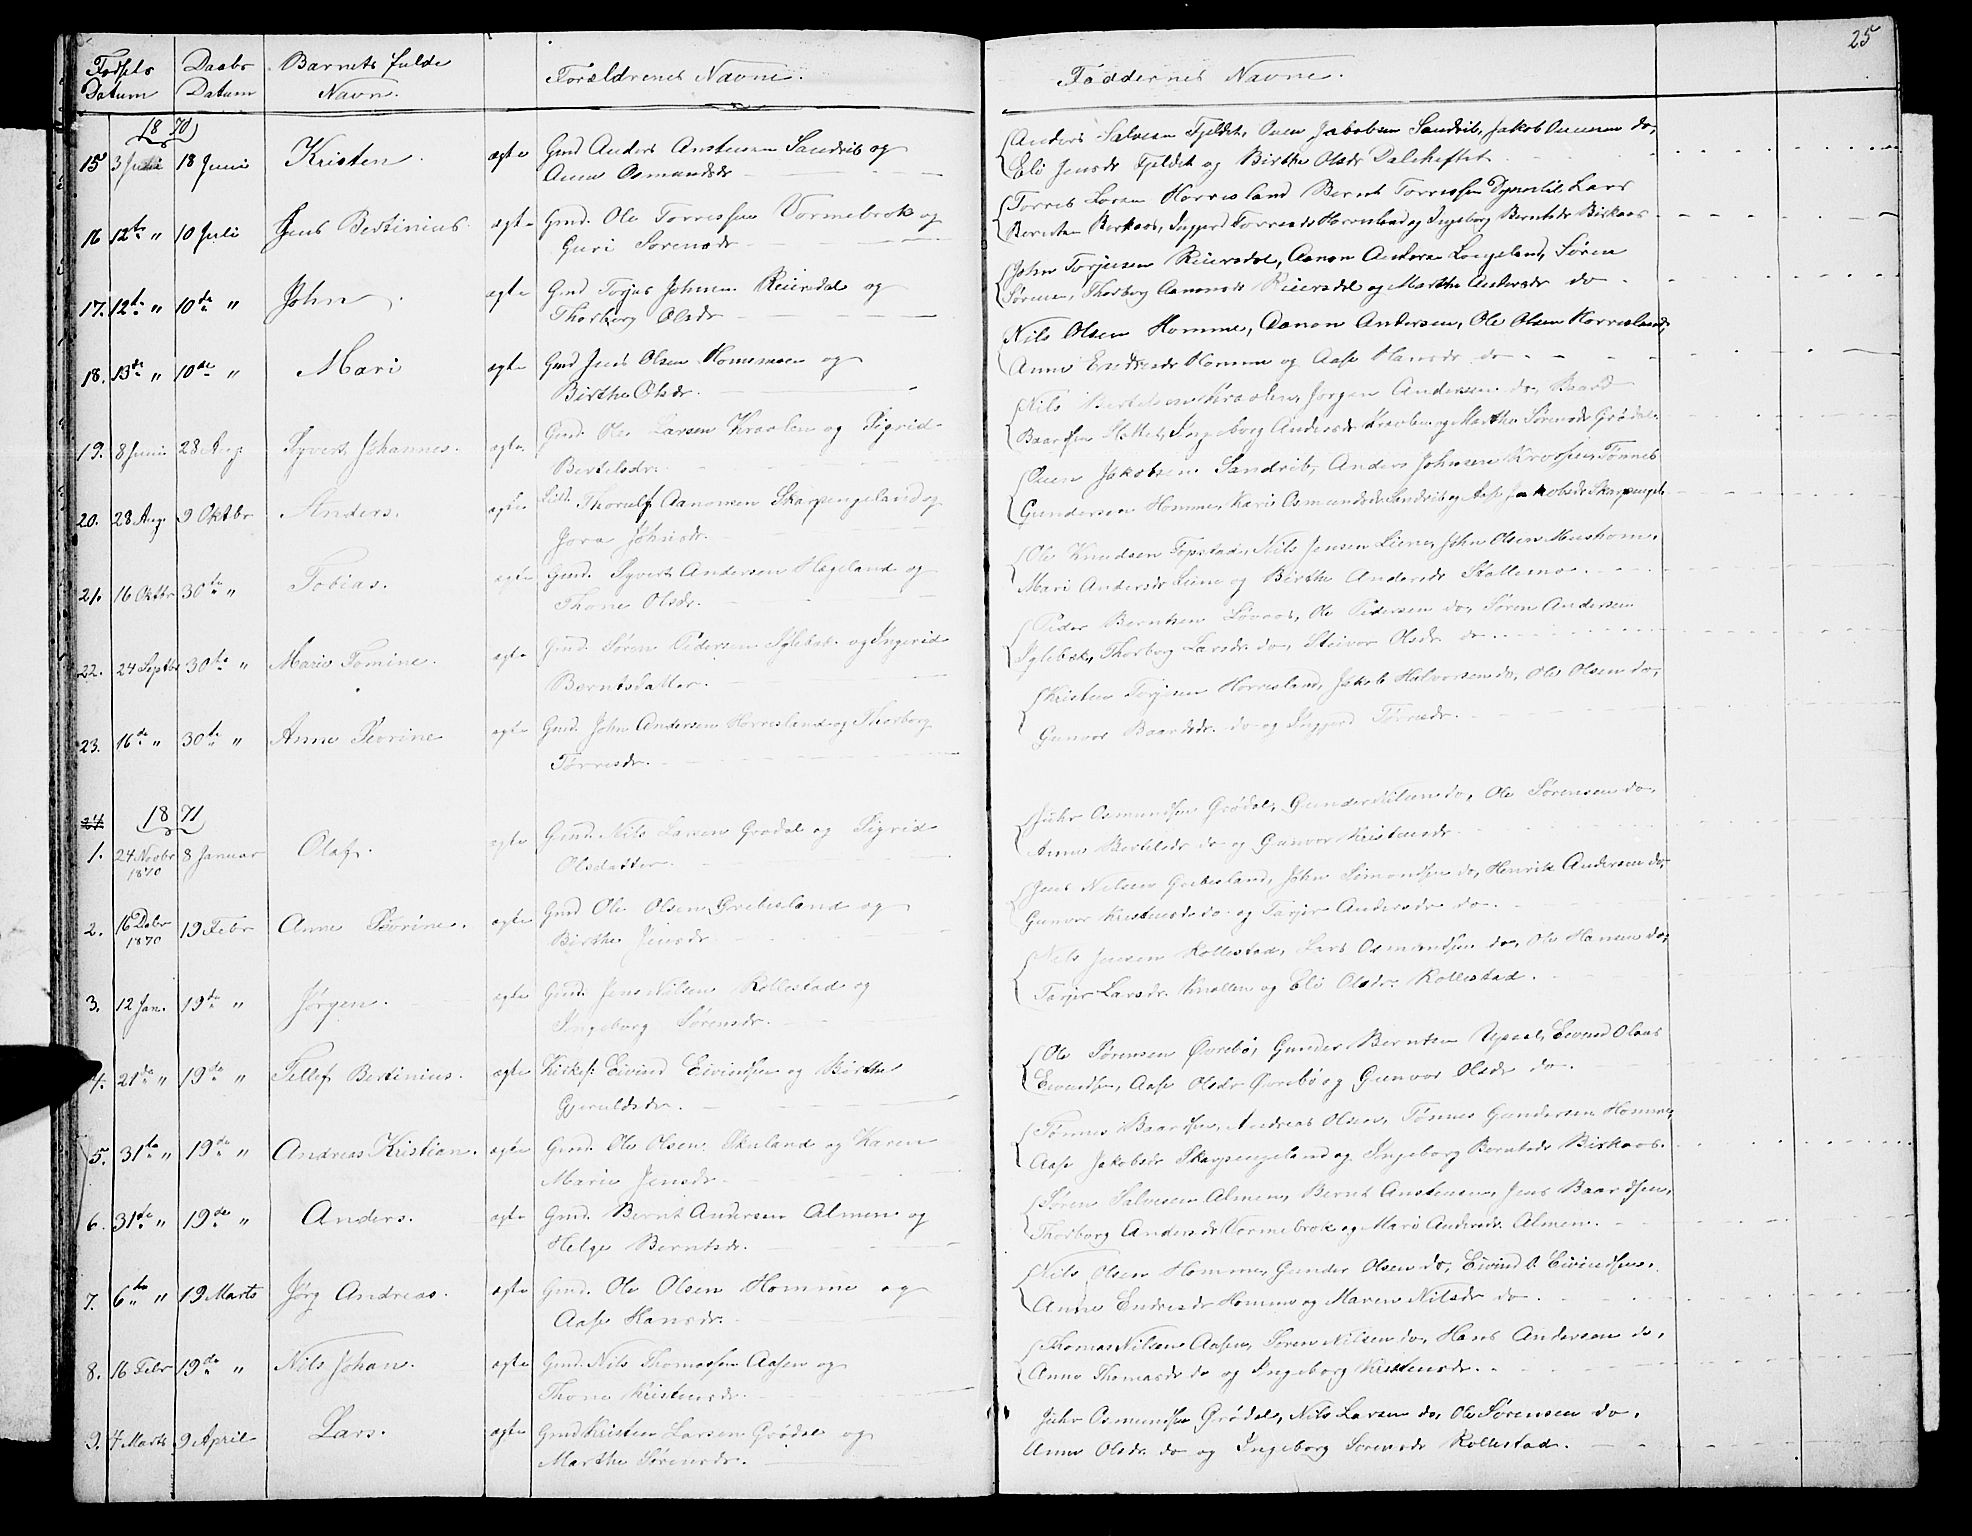 25
Fødsels Datum Daabs Datum Barnets fulde Navne. Forældrenes Navne. Faddernes Navne.
1870
15 3 Juni 18 Juni Kristen. ægte Gmd Anders Anstensen Sandrib og
Anne Osmundsdr
Anders Salvesen Fjeldet, Ouen Jakobsen Sandrib, Jakob Ouensen do,
Eli Jensdr Fjeldet og Birthe Olsdr Daleheftet
16 12te " 10 Juli Jens Bertinius. ægte Gmd. Ole Torressen Vormebrok og
Guri Sørensdr
Torres Larsen Horresland Bernt Torressen Lars
Berntsen Birkaas, Ingjerd Torresdr Horresland og Ingeborg Berntsdr Birkaas
17. 12te " 10de " John. ægte Gmd Torjus Johnsen Reiersdal og
Thorborg Olsdr
John Torjusen Reiersdal, Aanon Andersen Loigeland, Søren
Sørensen, Thorborg Aanonsdr Reiersdal og Marthe Andersdr do.
18. 13de " 10de " Mari ægte Gmd Jens Olsen Hommemoen og
Birthe Olsdr.
Nils Olsen Homme, Aanon Andersen, Ole Olsen Horresland,
Anne Endresdr Homme og Aase Hansdr do
19. 8 Juni 28 Aug. Syvert Johannes. ægte Gmd. Ole Larsen Kraolen og Sigrid
Bertelsdr.
Nils Bertelsen Kraolen, Jørgen Andersen do, Baard
Baardsen Ingeborg Andersdr Kraolen og Marthe Sørensdr Grødal.
20. 28 Aug. 9 Oktbr Anders. ægte Thorulf Aanonsen Skarpengeland og
Jora Johnsdr.
Ouen Jakobsen Sandrib, Anders Johnsen Tønnes
Gundersen Homme, Kari Osmundsdr Sandrib og Aase Jakobsdr Skarpengel.
21. 16 Oktbr 30te " Tobias. ægte Gmd. Syvert Andersen Hageland og
Thone Olsdr.
Ole Knudsen Fopstad, Nils Jensen Liene, John Olsen
Mari Andersdr Liene og Birthe Andersdr Stallemo
22. 24 Septbr 30te " Marie Tomine. ægte Gmd. Søren Pedersen Sglebæk og Ingerid
Berntsdatter.
Peder Berntsen Løvaas, Ole Pedersen do, Søren Andersen
Sglebæk, Thorborg Larsdr do, Steivor Olsdr do
23. 16de " 30te " Anne Severine ægte Gmd. John Andersen Horresland og Thorborg
Torresdr.
Kristen Torjusen Horresland, Jakob Halvorsen do, Ole Olsen do,
Gunvor Baardsdr. do og Ingjerd Torresdr.
24
1871
1. 24 Novbr 1870 8 Januar Olaf. ægte Gmd. Nils Larsen Grødal og Sigrid
Olsdatter.
Osmundsen Grødal, Gunder Nilsen do, Ole Sørensen do,
Anne Bertelsdr do og Gunvor Kristensdr
2. 16 Debr 1870 19 Febr Anne Severine. ægte Gmd Ole Olsen Greibesland og
Birthe Jensdr.
Jens Nielsen Greibesland, John Simondsen do, Henrik Andersen do,
Gunvor Kristensdr do og Tarjer Andersdr do
3. 12 Jan. 19de " Jørgen. ægte Gmd. Jens Nilsen Rollestad og
Ingeborg Sørensdr.
Nils Jensen Rollestad, Lars Osmundsen do, Ole Hansen do,
Tarjer Larsdr. og Eli Olsdr. Rollestad.
4. 21de " 19de " Tellef Bertinius. ægte Kirkes: Eivind Eivindsen og Børthe
Gjeruldsdr.
Ole Sørensen Øvrebø, Gunder Berntsen Upsal, Eivind Olaus
Eivindsen, Aase Olsdr Øvrebø og Gunvor Olsdr do.
5. 31te " 19de " Andreas Kristian. ægte Gmd. Ole Olsen Skuland og Karen
Marie Jensdr.
Tønnes Baardsen, Andreas Olsen, Tønnes Gundersen Homme,
Aase Jakobsdr Skarpengeland og Ingeborg Berntsdr Birkaas.
6. 31te " 19de " Anders. ægte Gmd. Bernt Andersen Almen og
Helge Berntsdr.
Søren Salvesen Almen, Bernt Anstensen, Jens Baardsen,
Thorborg Andersdr Vormebrok og Mari Andersdr. Almen.
7. 6te " " 19 Marts Jørg Andreas. ægte Gmd. Ole Olsen Homme og
Aase Hansdr.
Nils Olsen Homme, Gunder Olsen do, Eivind O. Eivindsen,
Anne Endresdr Homme og Maren Nilsdr do.
8. 16 Febr 19de " Nils Johan. ægte Gmd. Nils Thomassen Aasen og
Thone Kristensdr.
Thomas Nilsen Aasen, Søren Nilsen do, Hans Andersen do,
Anne Thomasdr do og Ingeborg Kristensdr.
9. 4 Marts 9 April Lars. ægte Gmd Kristen Larsen Grødal og
Marthe Sørensdr.
Osmundsen Grødal, Nils Larsen do, Ole Sørensen do,
Anne Olsdr. do og Ingeborg Sørensdr Rollestad.